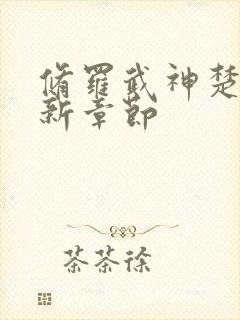 脩羅武神楚
新章節
茶茶徐